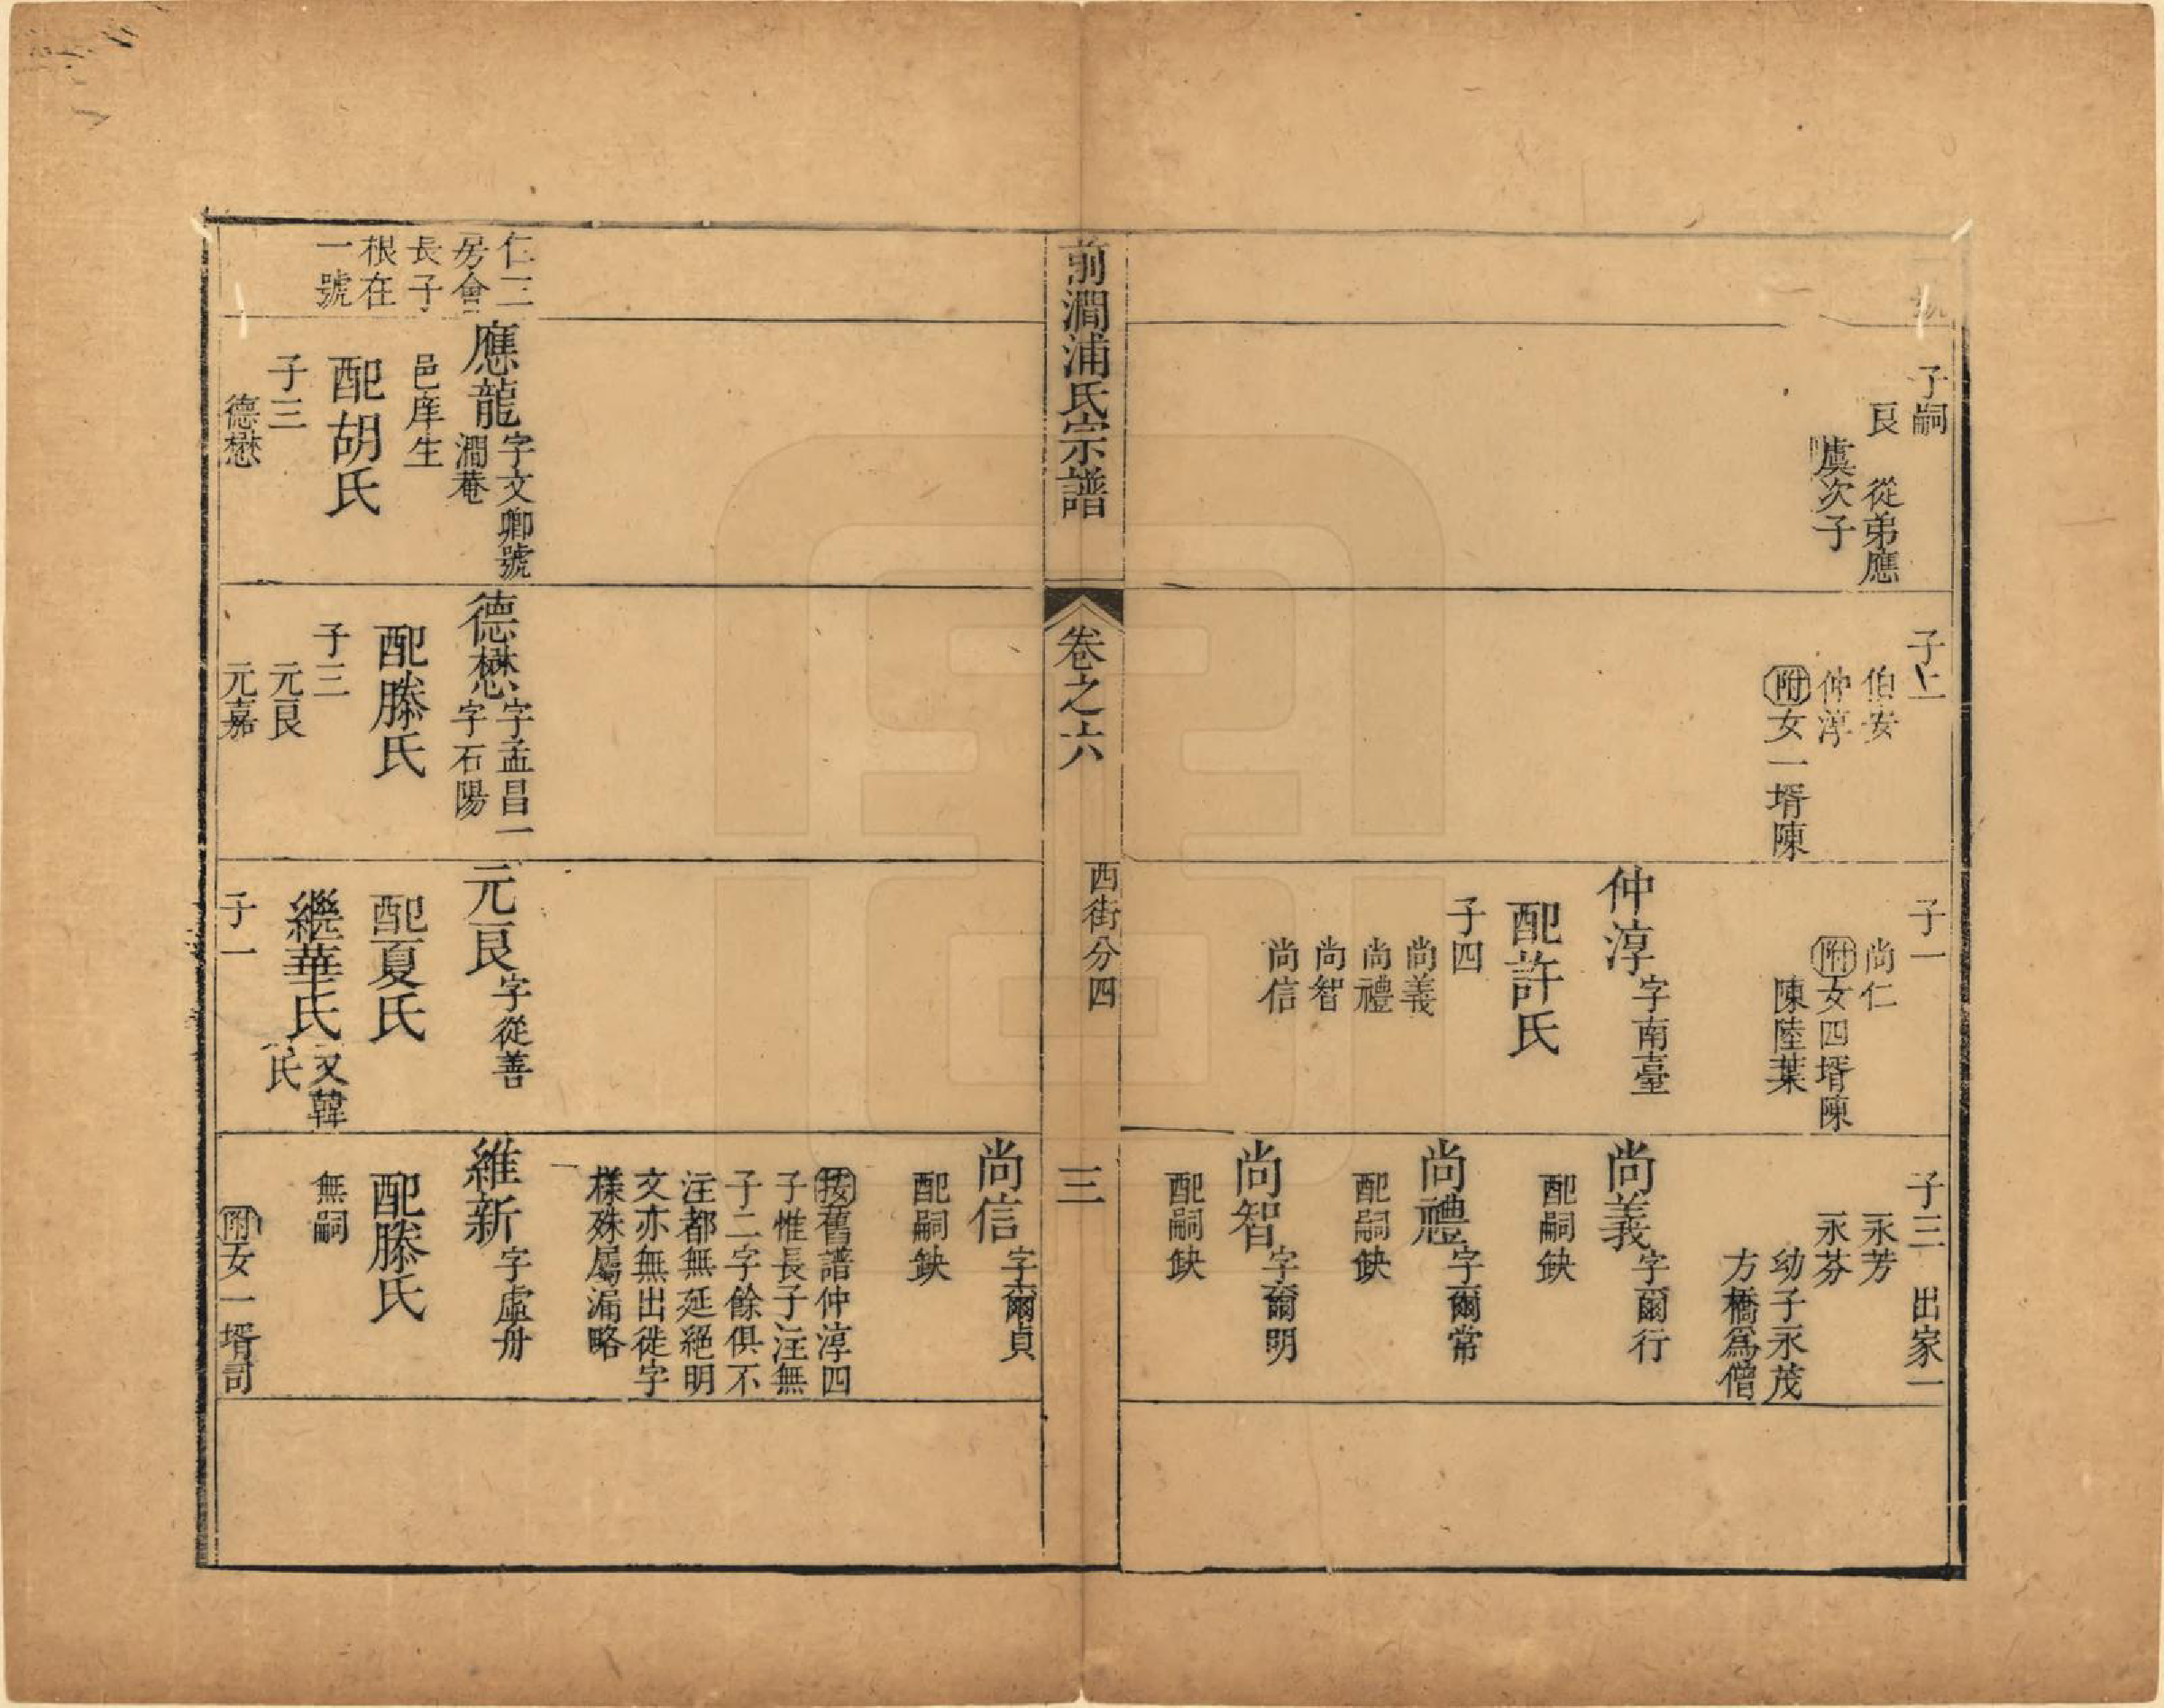 號
子嗣
艮 從弟應
虞次子
子二
伯安
仲淳
附女一壻陳
子一
尚仁
附女四壻陳
陳陸葉
仲淳 字南臺
配許氏
子四
尚義
尚禮
尚智
尚信
子三 出家一
永芳
永芬
幼子永茂
方橋爲僧
尚義 字爾行
配嗣缺
尚禮 字爾常
配嗣缺
尚智 字爾明
配嗣缺
前澗浦氏宗譜
卷之六
西街分四
三
仁三
房會
長子
根在
一號
應龍 字文卿號
澗菴
邑庠生
配胡氏
子三
德懋
德懋 字孟昌一
字石陽
配滕氏
子三
元艮
元嘉
元艮 字從善
配夏氏
繼華氏 又韓
氏
子一
尚信 字爾貞
配嗣缺
按舊譜仲淳四
子惟長子注無
子二字餘俱不
注都無延絕明
文亦無出徙字
樣殊屬漏略
維新 字虛舟
配滕氏
無嗣
附女一壻司